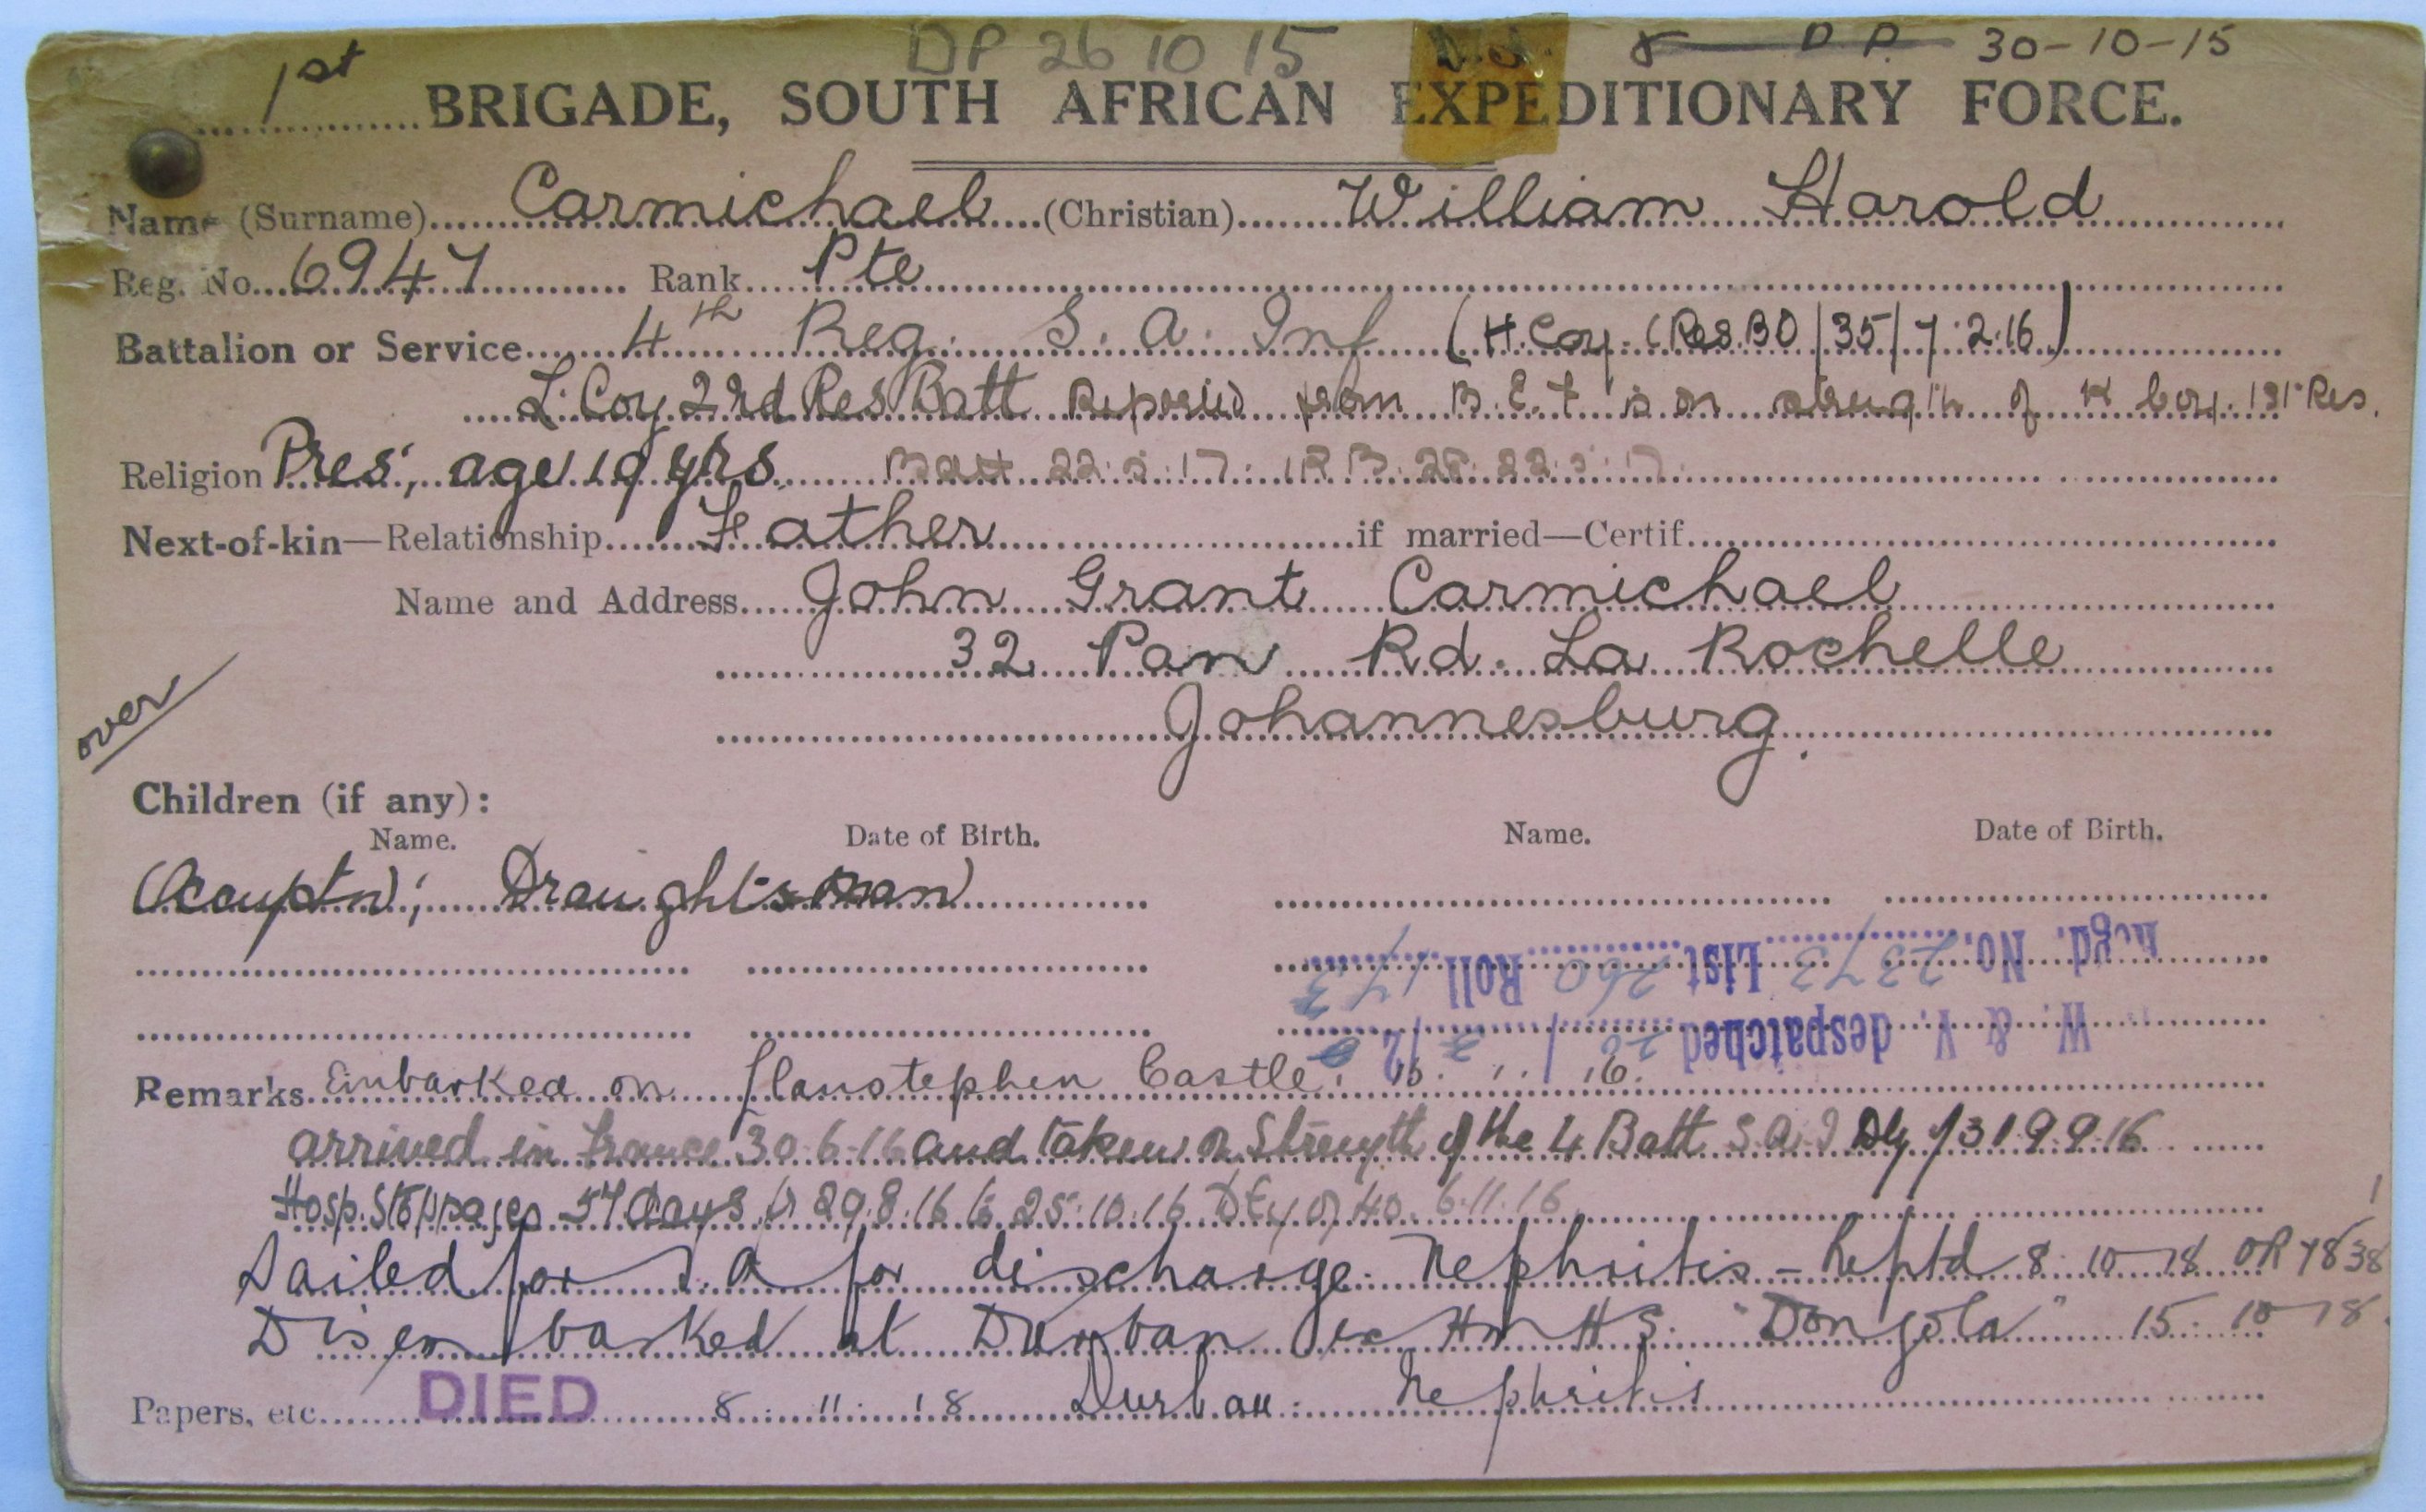 DP 26 10 15 D.P. 30-10-15
1st BRIGADE, SOUTH AFRICAN EXPEDITIONARY FORCE.
Name (Surname) Carmichael (Christian) William Harold
Reg. No. 6947 Rank Pte
Battalion or Service 4th Reg. S. A. Inf (H. Coy. (Res BO/35/7.2.16)
L. Coy 22nd Res Batt Reported from B.E.F is on strength of H Coy. 1st Res.
Religion Pres; age 19 yrs Batt 22.5.17. 1RB. 28. 22.5.17.
Next-of-kin—Relationship Father if married—Certif.
Name and Address John Grant Carmichael
32 Pan Rd. La Rochelle
Johannesburg.
over
Children (if any):
Name. Date of Birth. Name. Date of Birth.
Occuptn; Draughtsman
Regd. No. 2373 List 260 Roll 173
W. & V. despatched 20/2/2
Remarks Embarked on Llanstephen Castle. 16.
arrived in France 30.6.16 and taken on Strength of the 4 Batt S.A.I 9.9.16
Hosp. Stoppages 57 days fr 29.8.16 to 25.10.16 40. 6.11.16
Sailed for S.A for discharge. Nephritis - Reptd 8.10.18 OR 7838
Disembarked at Durban ex HMHS. "Dongola" 15.10.18.
Papers, etc. DIED 8.11.18 Durban. Nephritis